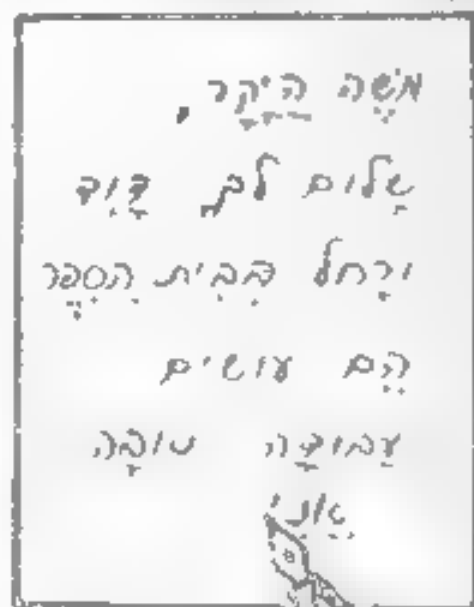 מֹשֶׁה הַיָקָר,
שָלום דָוִד
ורָחל בְבֵית הַסֵפֶר
הֵם עושים
עֲבודָה טובָה